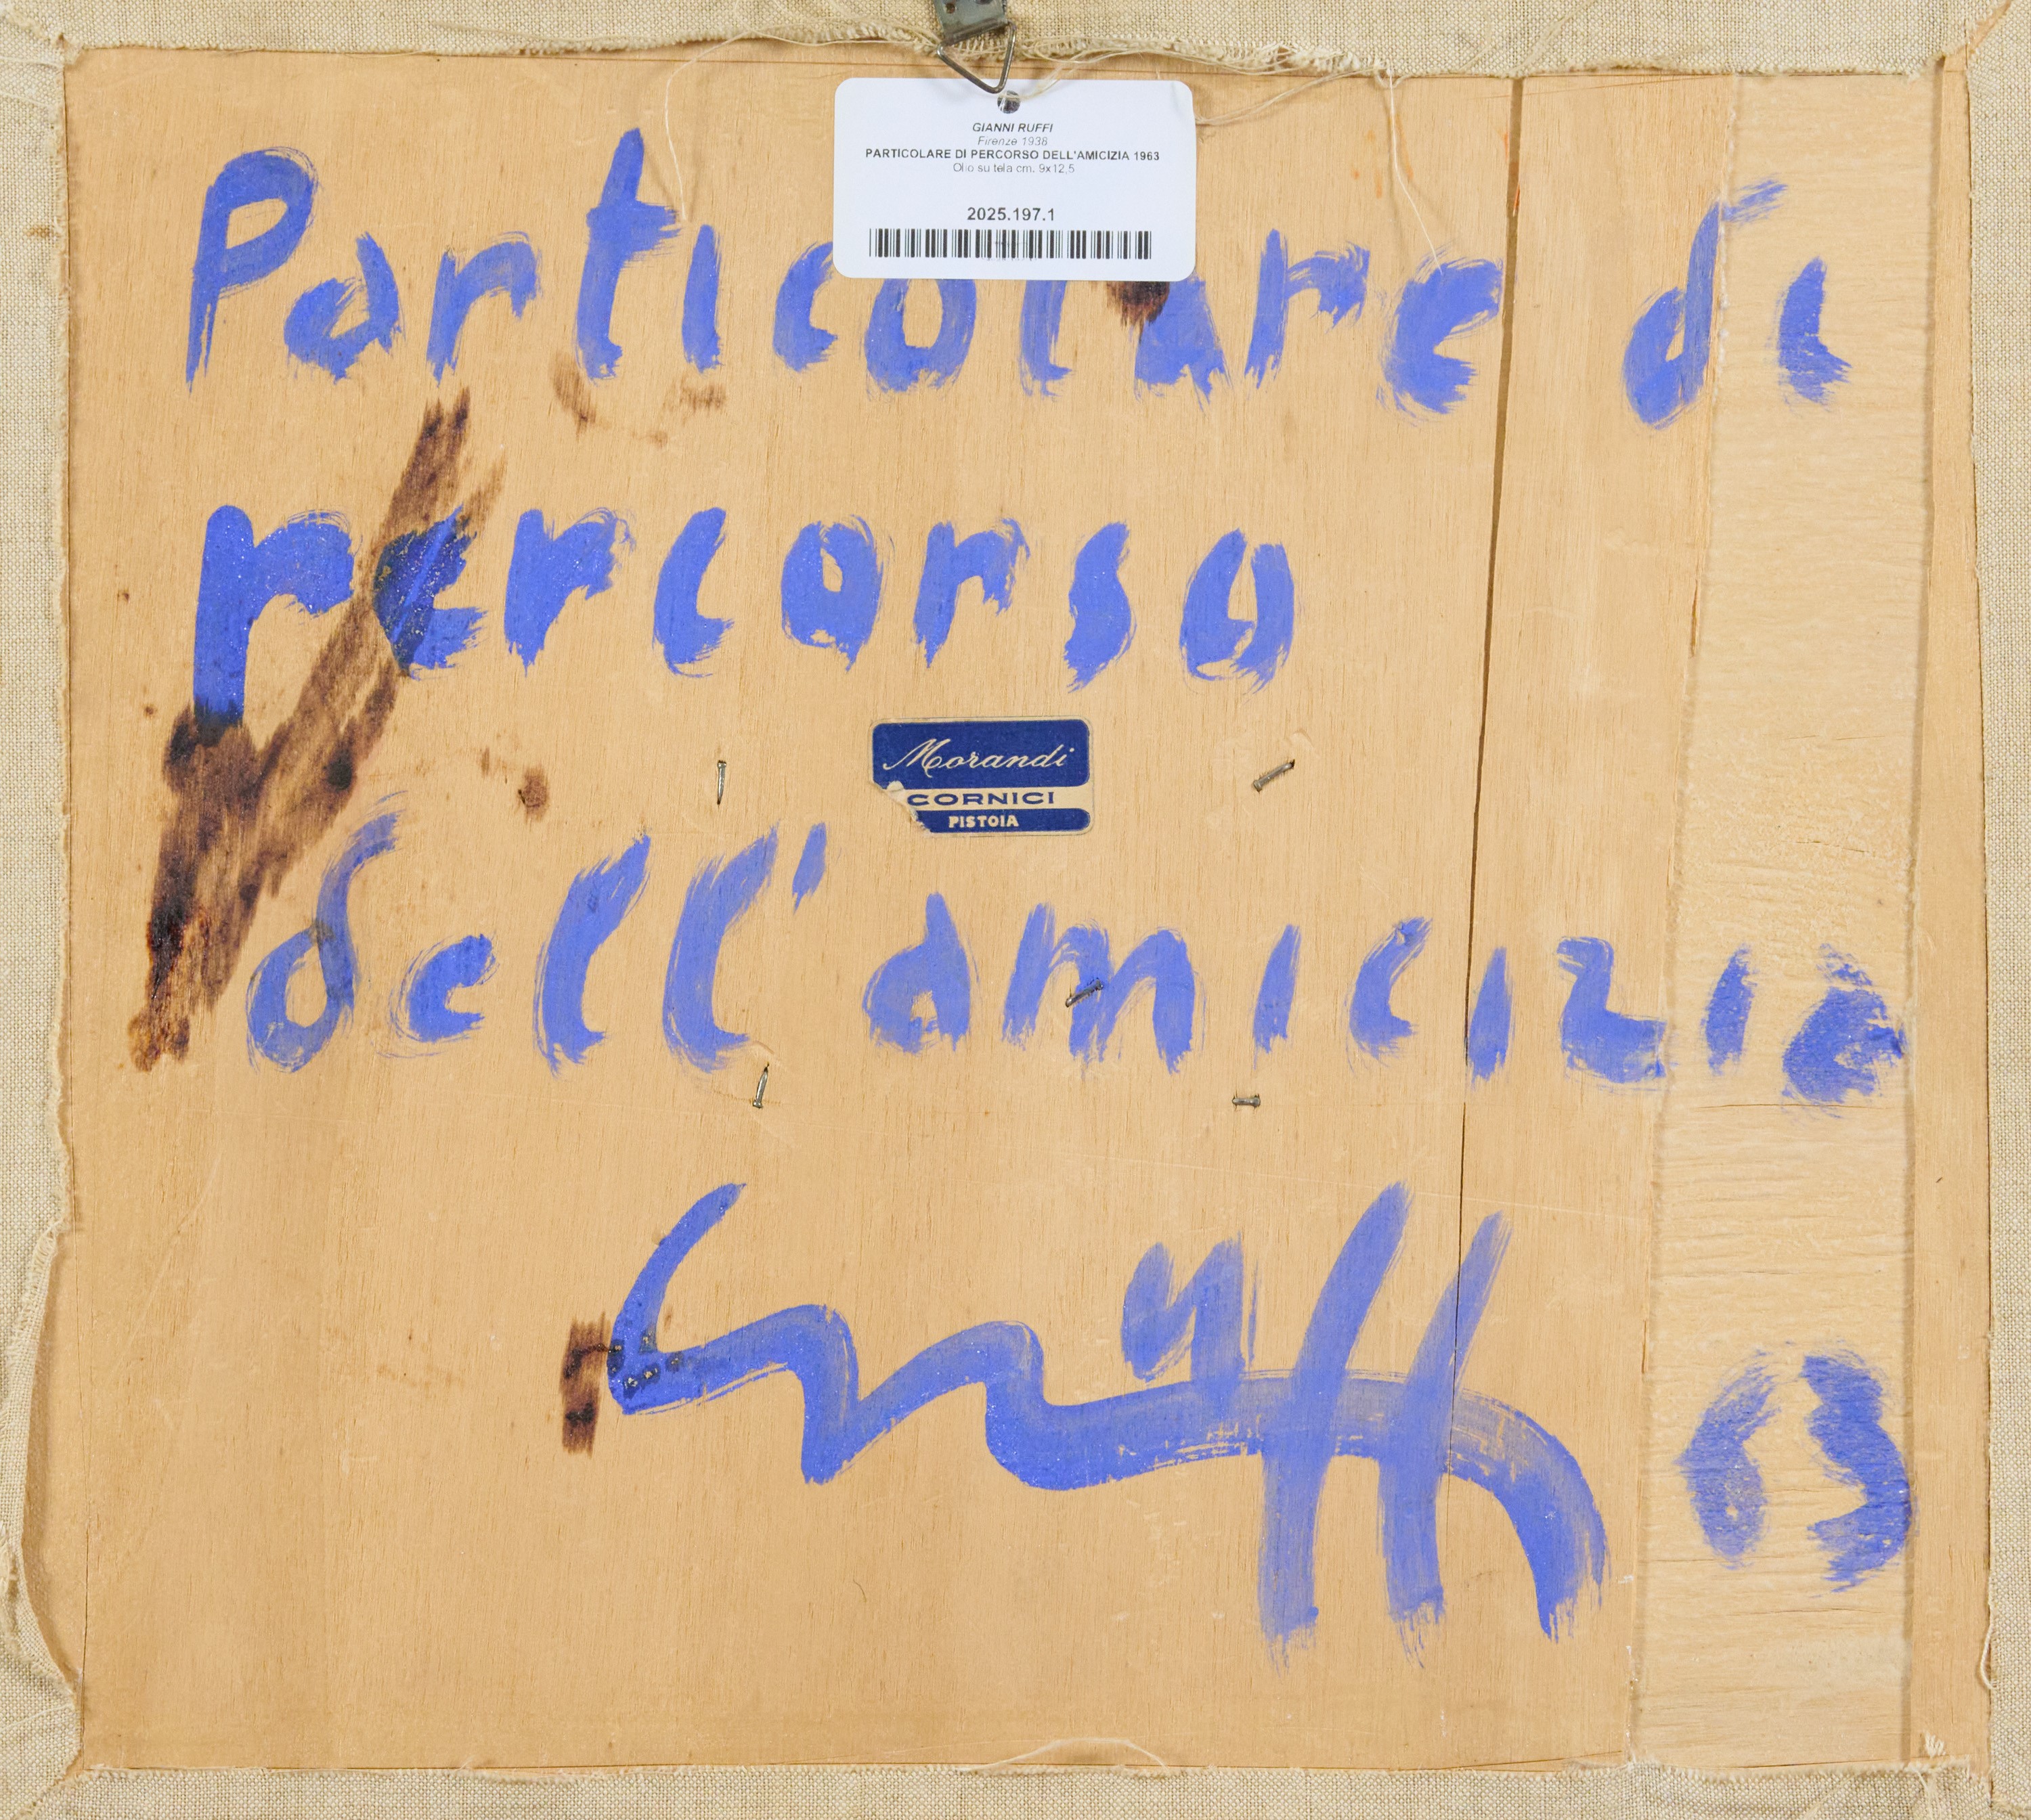 GIANNI RUFFI
Firenze 1938
PARTICOLARE DI PERCORSO DELL'AMICIZIA 1963
Olio su tela cm. 9x12,5
2025.197.1
Particolare di
percorso
Morandi
CORNICI
PISTOIA
dell'amicizia
Ruffi
63